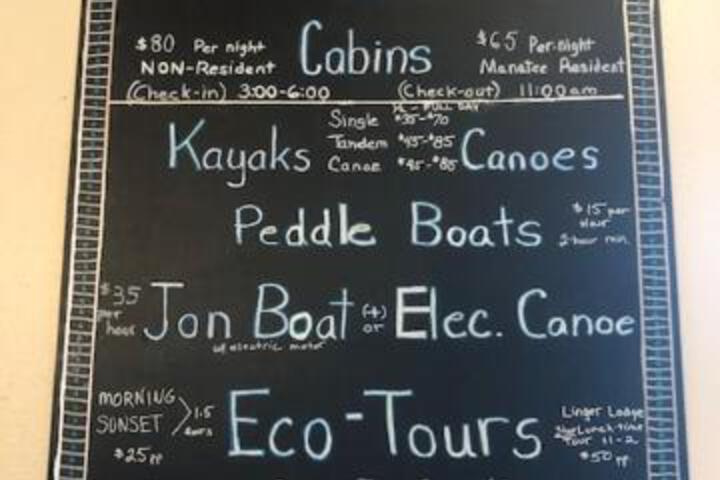 $80 Per night Cabins $65 Per night
NON-Resident Manatee Resident
(Check-in) 3:00-6:00 (Check-out) 11:00am
FULL DAY
Single $35-$70
Kayaks Tandem $45-$85 Canoes
Canoe $45-$85
Peddle Boats $15 per
Hour
2-hour min.
$35 per hour Jon Boat (4) or Elec. Canoe
w/ electric motor
MORNING
SUNSET 1.5 hours Eco-Tours Linger Lodge
Lunch-time
Tour 11-2
$25 pp $50 pp